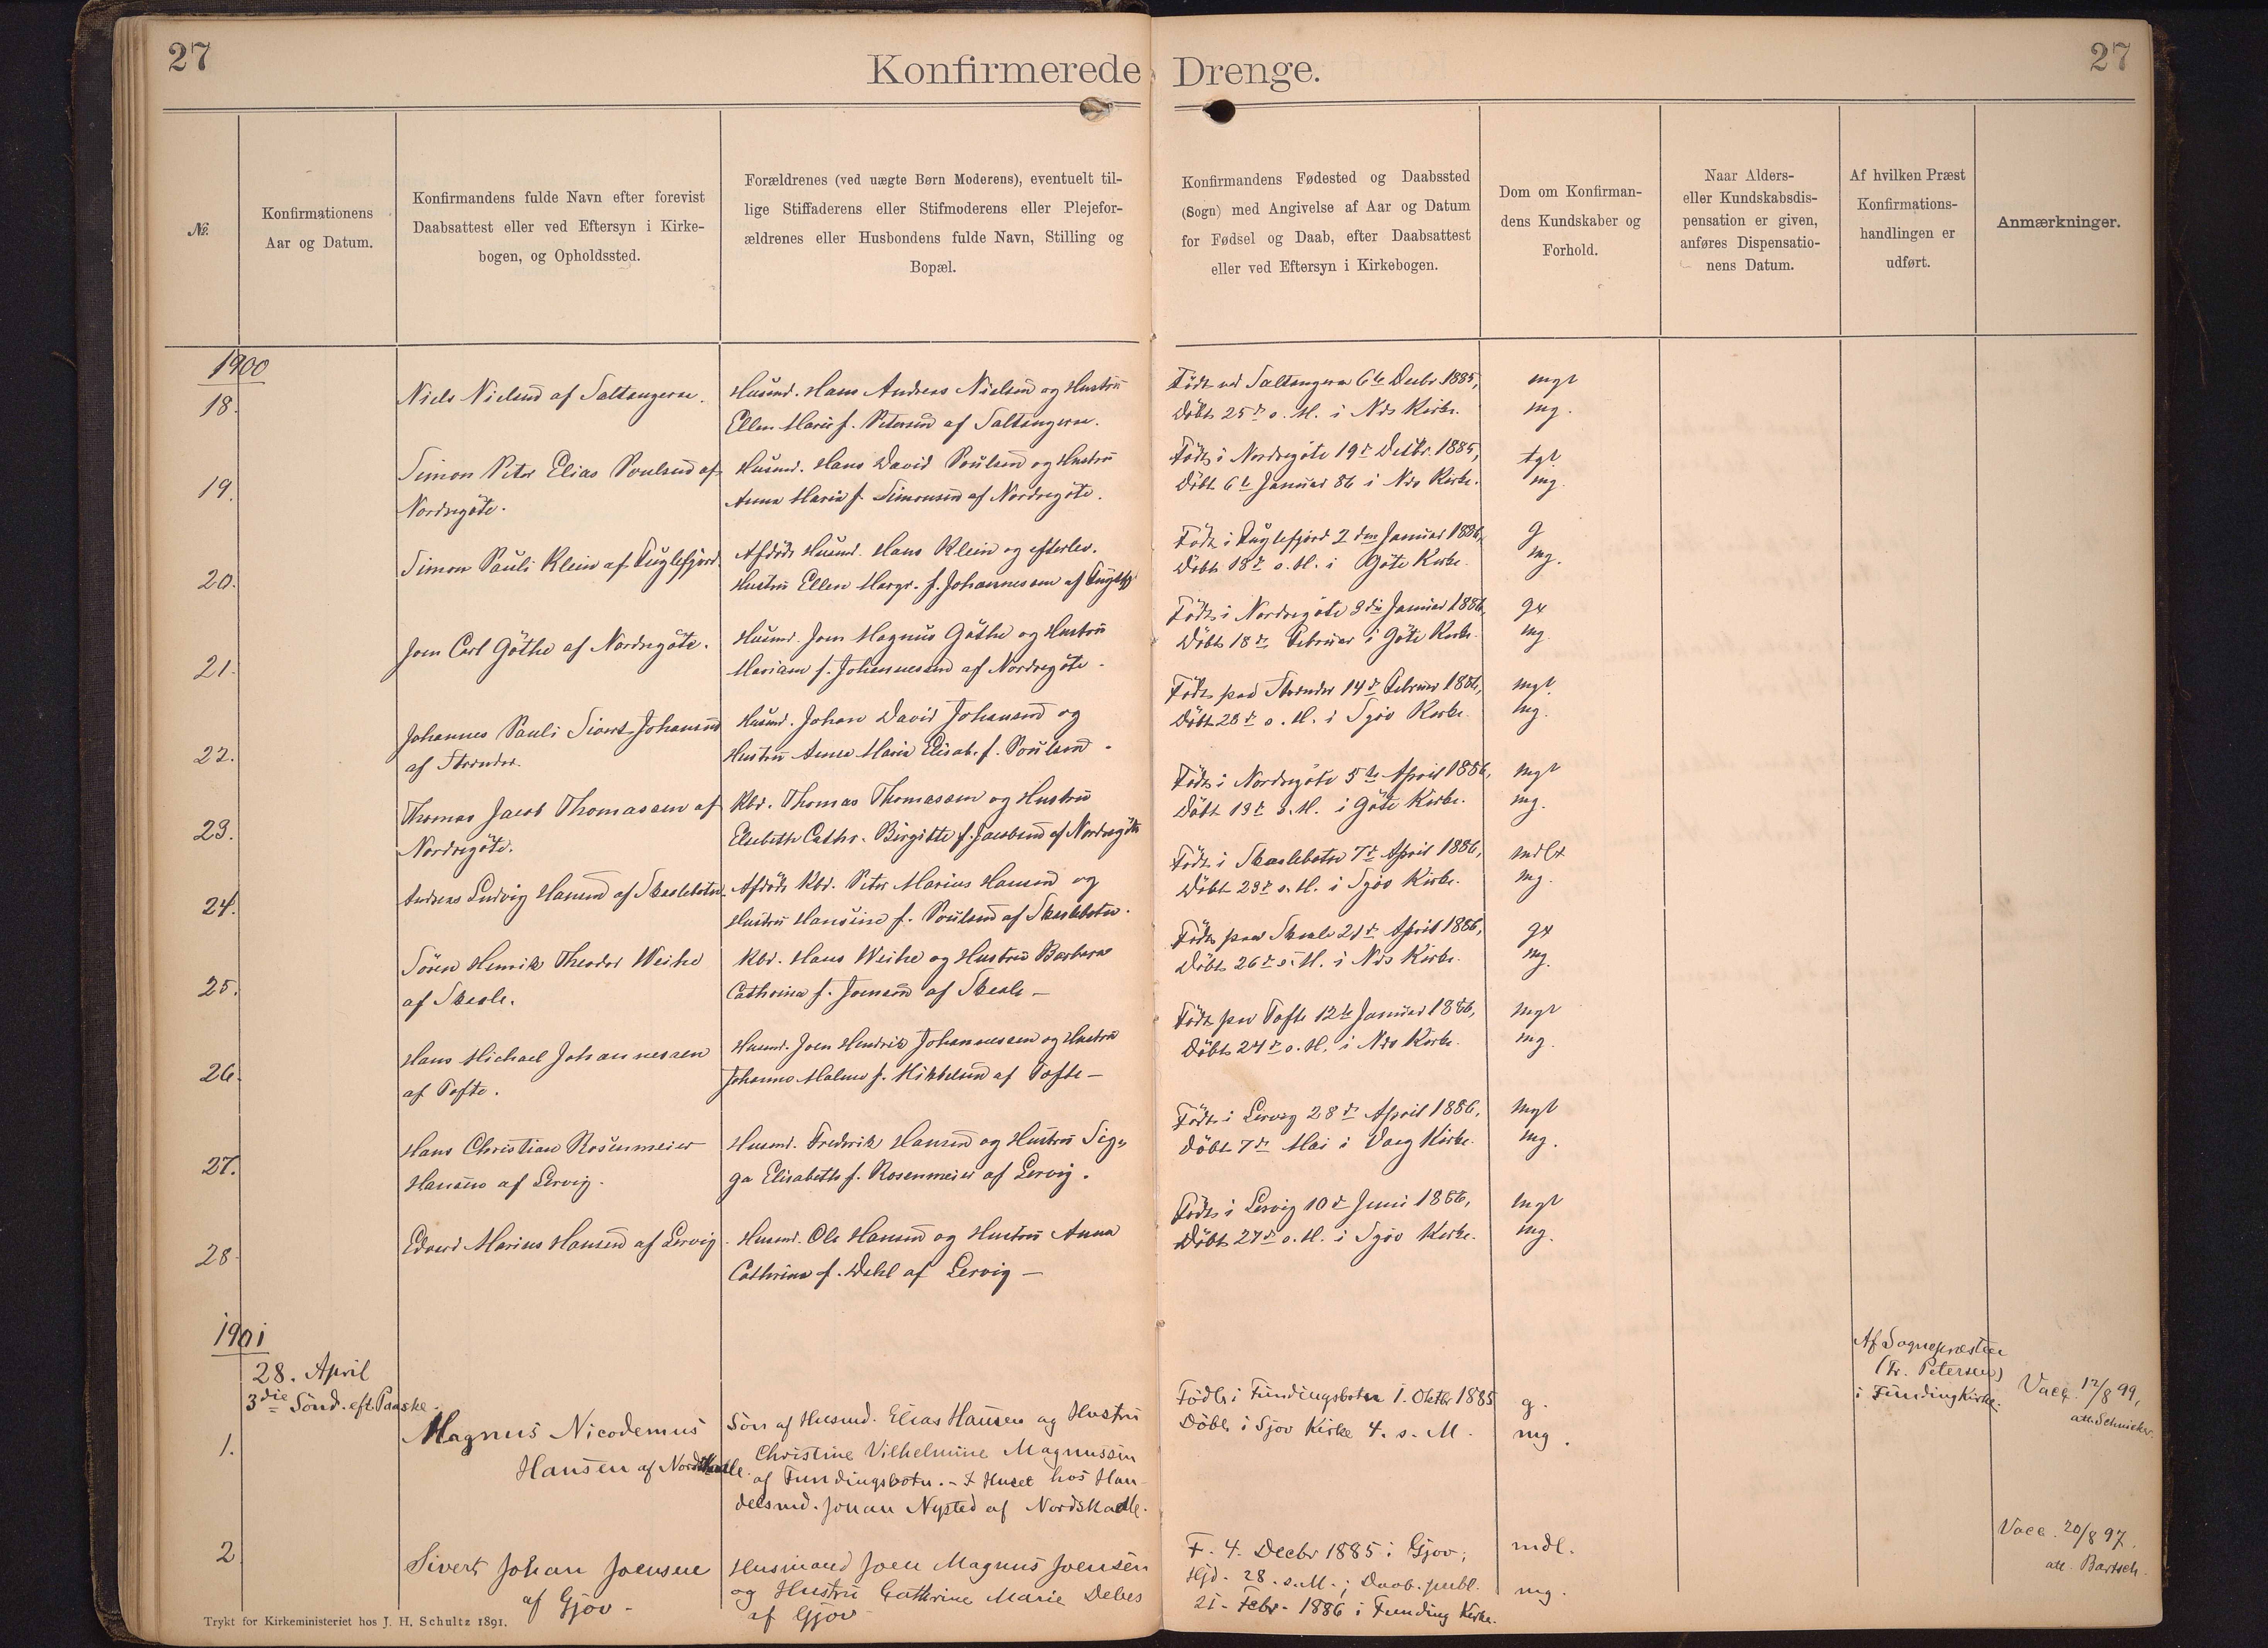 27
Konfirmerede Drenge.
27
No.
Konfirmationens
Aar og Datum.
Konfirmandens fulde Navn efter forevist
Daabsattest eller ved Eftersyn i Kirke-
bogen, og Opholdssted.
Forældrenes (ved uægte Børn Moderens), eventuelt til-
lige Stiffaderens eller Stifmoderens eller Plejefor-
ældrenes eller Husbondens fulde Navn, Stilling og
Bopæl.
Konfirmandens Fødested og Daabssted
(Sogn) med Angivelse af Aar og Datum
for Fødsel og Daab, efter Daabsattest
eller ved Eftersyn i Kirkebogen.
Dom om Konfirman-
dens Kundskaber og
Forhold.
Naar Alders-
eller Kundskabsdis-
pensation er given,
anføres Dispensatio-
nens Datum.
Af hvilken Præst
Konfirmations-
handlingen er
udført.
Anmærkninger.
1900
18.
Niels Nielsen af Saltangerne.
Husmd. Hans Andreas Nielsen og Hustru
Ellen Marie f. Petersen af Saltangerne.
Født ved Saltangerne 6te Decbr 1885,
Döbt 25de s. M. i Nds Kirke.
mgt
mg.
19.
Simon Peter Elias Poulsen af
Nordregöte.
Husmd. Hans David Poulsen og Hustru
Anna Maria f. Simonsen af Nordregöte.
Födt i Nordregöte 19de Decbr. 1885,
Döbt 6te Januar 86 i Nds Kirke.
tgt
mg.
20.
Simon Pauli Klein af Fuglefjord.
Afdöde Husmd. Hans Klein og efterlev.
Hustru Ellen Margr. f. Johannessen af Fuglefj.
Födt i Fuglefjord 2den Januar 1886,
Döbt 18de s. M. i Göte Kirke.
g
mg.
21.
Joen Carl Göthe af Nordregöte.
Husmd. Joen Magnus Göthe og Hustru
Mariane f. Johannesen af Nordregöte.
Födt i Nordregöte 3die Januar 1886
Döbt 18de Februar i Göte Kirke.
gx
mg.
22.
Johannes Pauli Sivert Johansen
af Strender.
Husmd. Johan David Johansen og
Hustru Anna Maria Elisab. f. Poulsen.
Födt paa Strender 14de Februar 1886,
Döbt 28de s. M. i Sjöv Kirke.
mgt.
mg.
23.
Thomas Jacob Thomassen af
Nordregöte.
Kbd. Thomas Thomassen og Hustru
Elsebeth Cathr. Birgitte f. Jacobsen af Nordregöte
Födt i Nordregöte 5te April 1886,
Döbt 13de s. M. i Göte Kirke.
mgt
mg.
24.
Andreas Ludvig Hansen af Skaalebotn.
Afdöde Kbd. Peter Marius Hansen og
Hustru Hansine f. Poulsen af Skaalebotn.
Födt i Skaalebotn 7de April 1886,
Döbt 23de s. M. i Sjöv Kirke.
mdlx
mg.
25.
Sören Henrik Theodor Weihe
af Skaale.
Kbd. Hans Weihe og Hustru Barbara
Cathrina f. Joensen af Skaale —
Födt paa Skaale 21de April 1886,
Döbt 26de s. M. i Nds Kirke.
gx
mg.
26.
Hans Michael Johannessen
af Tofte.
Husmd. Joen Hendrik Johannessen og Hustru
Johanne Malene f. Mikkelsen af Tofte —
Födt paa Tofte 12te Januar 1886,
Döbt 24de s. M. i Nds Kirke.
mgt
mg.
27.
Hans Christian Rosenmeier
Hansen af Lervig.
Husmd. Frederik Hansen og Hustru Sig-
ga Elisabeth f. Rosenmeier af Lervig.
Födt i Lervig 28de April 1886,
Döbt 7de Mai i Vaag Kirke.
mgt
mg.
28.
Edvard Marius Hansen af Lervig.
Husmd. Ole Hansen og Hustru Anna
Cathrina f. Dahl af Lervig —
Födt i Lervig 10de Juni 1886,
Döbt 27de s. M. i Sjöv Kirke.
mgt
mg.
1901
28. April
3die Sönd. eft. Paaske.
1.
Magnus Nicodemus
Hansen af Nordskaale.
Sön af Husmd. Elias Hansen og Hustru
Christine Vilhelmine Magnussen
af Fundingsbotn. — I Huset hos Han-
delsmd. Johan Nysted af Nordskaale.
Födt i Fundingsbotn 1. Oktbr 1885
Döbt i Sjov Kirke 4. s. M.
g.
mg.
Af Sognepræsten
(Fr. Petersen)
i Funding Kirke.
Vacc. 12/8 99,
att. Schwicker.
2
Sivert Johan Joensen
af Gjov.
Husmand Joen Magnus Joensen
og Hustru Cathrine Marie Debes
af Gjov
F. 4. Decbr 1885 i Gjov;
Hjd. 28. s. M.; Daab. publ.
21. Febr. 1886 i Funding Kirke.
mdl.
mg.
Vacc. 20/8 97.
att. Bartsch.
Trykt for Kirkeministeriet hos J. H. Schultz 1891.